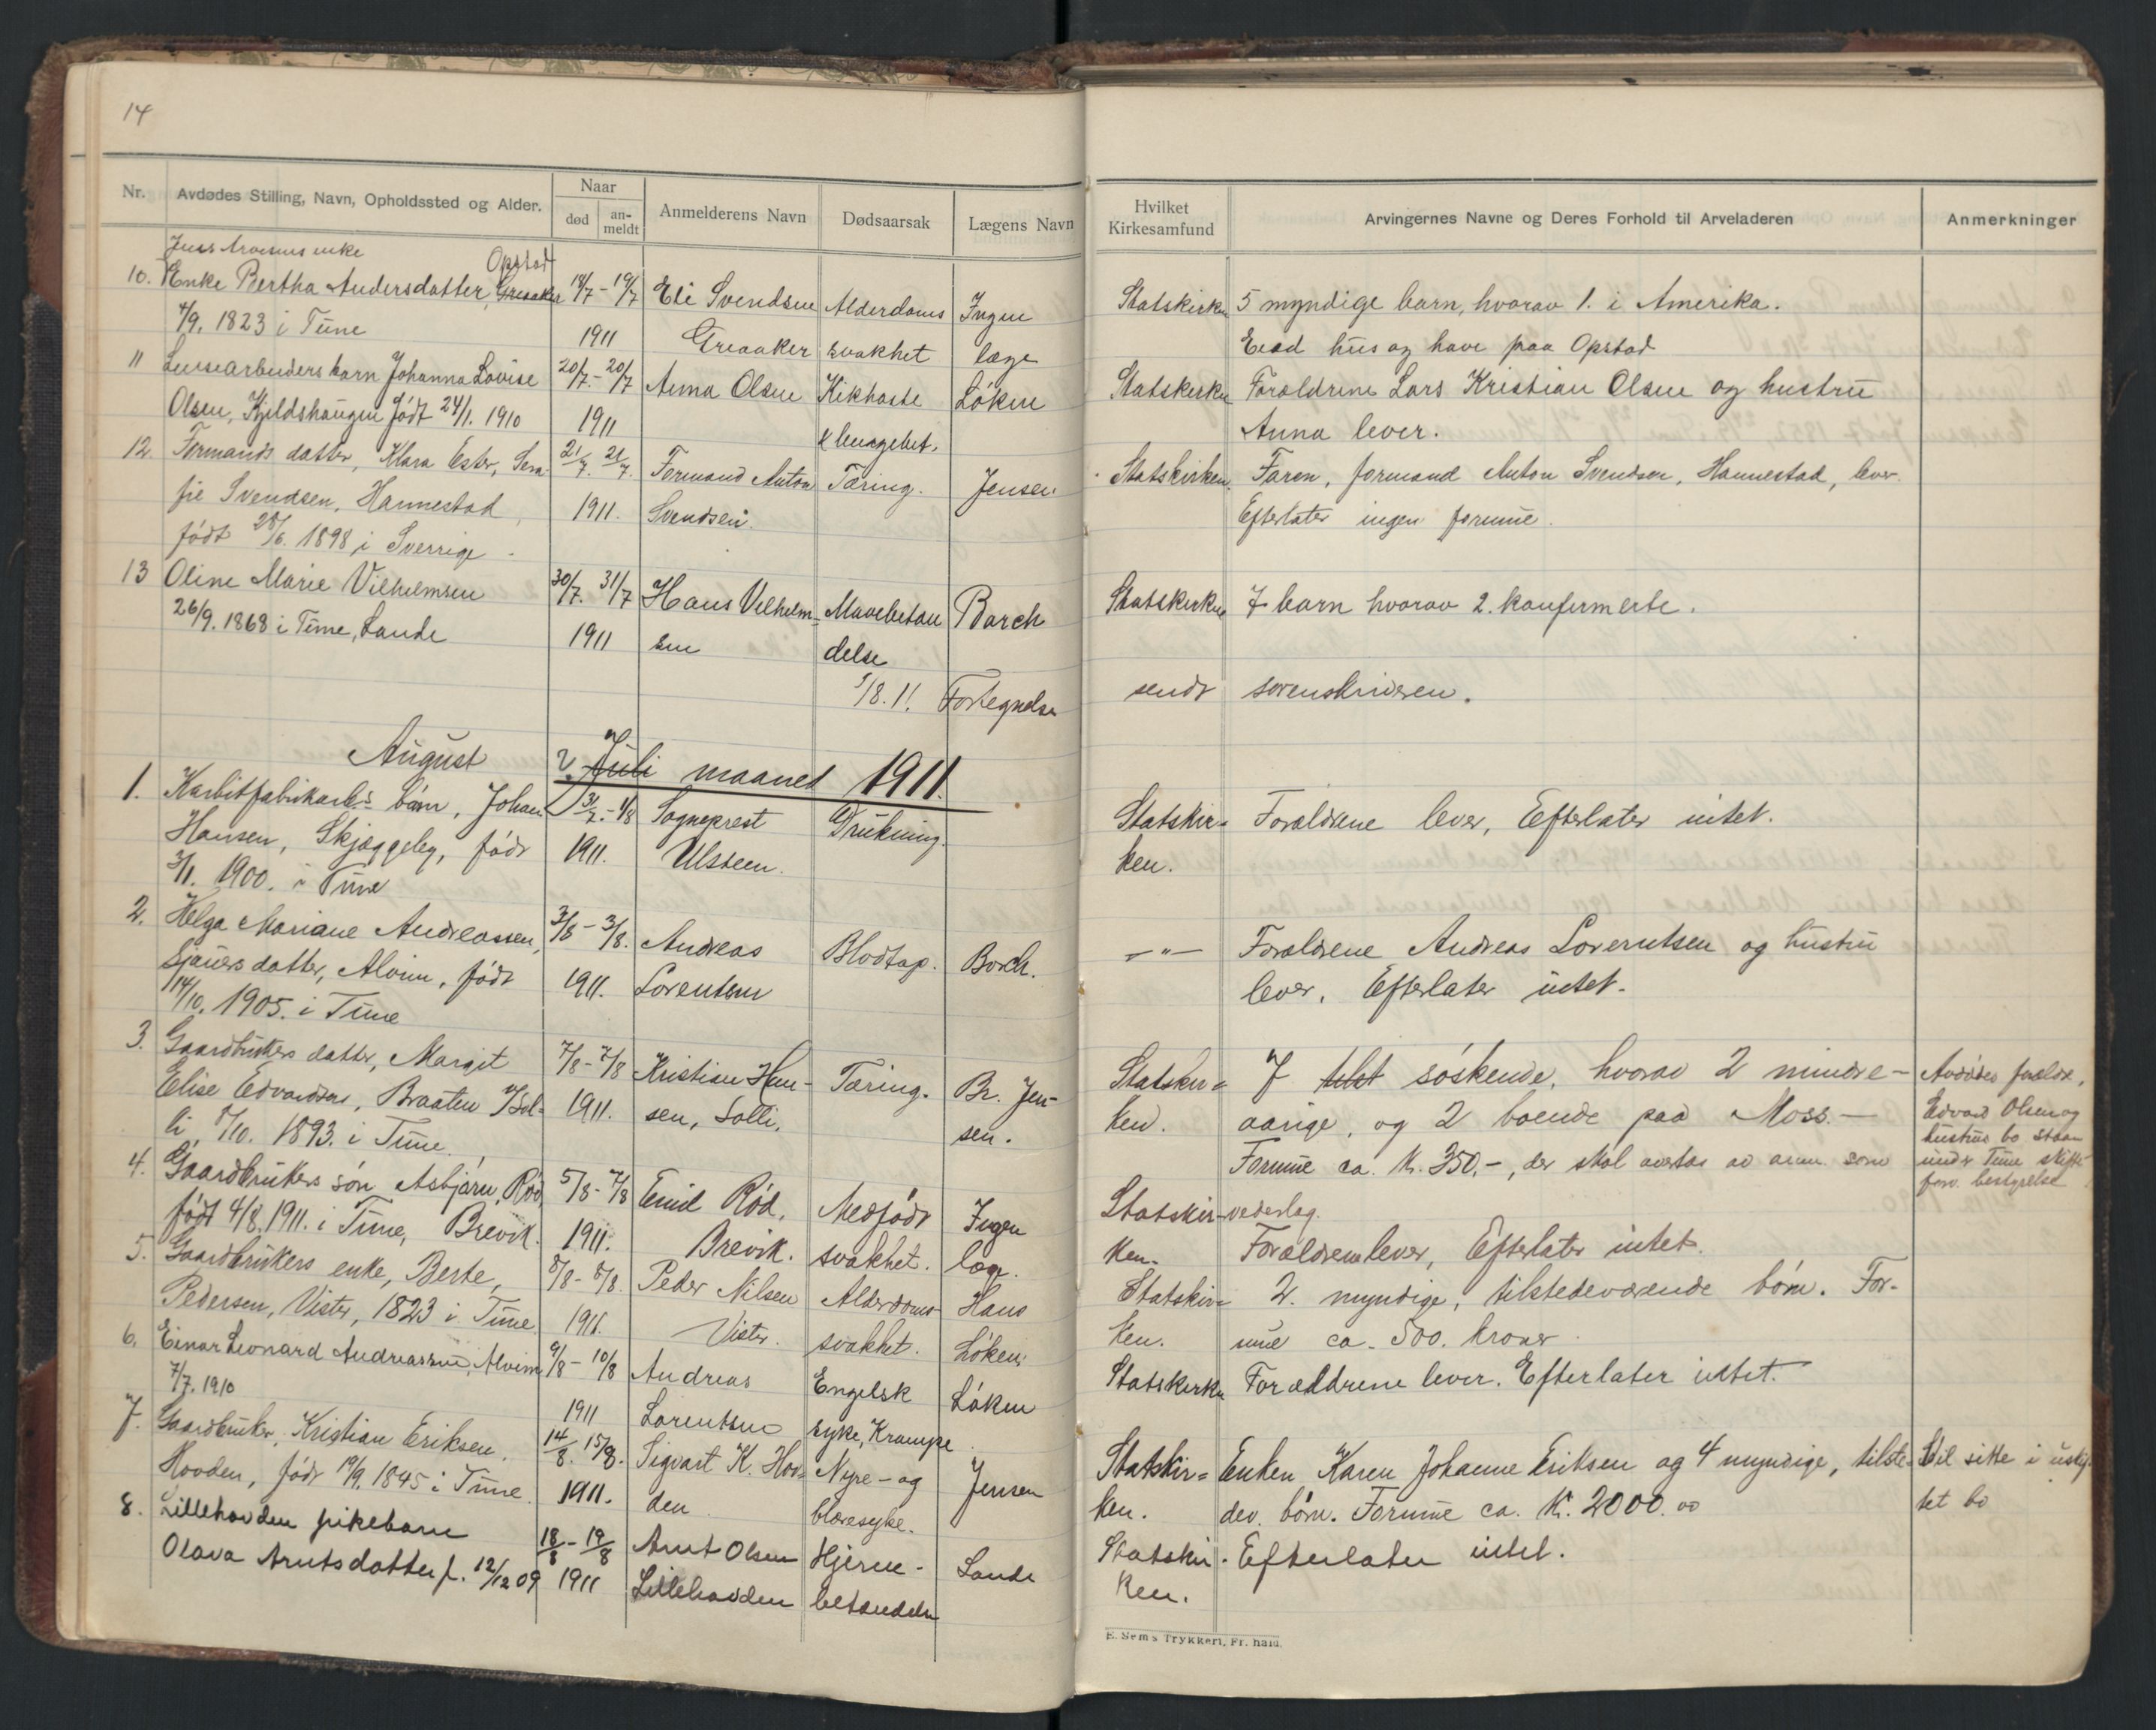 14
Nr. Avdødes Stilling, Navn, Opholdssted og Alder. Naar død an-meldt Anmelderens Navn Dødsaarsak Lægens Navn Hvilket Kirkesamfund Arvingernes Navne og Deres Forhold til Arveladeren Anmerkninger
enke Opstad
10. Enke Bertha Andersdatter, Greaaker 18/7 - 19/7 Eli Svendsen Alderdoms Ingen Statskirken 5 myndige barn, hvorav 1. i Amerika.
4/9. 1823 i Tune 1911 Greaaker svakhet læge Eied hus og have paa Opstad
11 Lensearbeiders barn Johanna Lovise 20/7. - 20/7 Anna Olsen Kikhoste Løken Statskirken Forældrene Lars Kristian Olsen og hustru
Olsen, Kjeldshaugen født 24/1. 1910 1911 & lungebet. Anna lever.
12. Formands datter, Klara Ester, Sera- 21/7. 21/7. Formand Anton Tæring. Jensen Statskirken. Faren, formand Anton Svendsen, Hannestad, lever.
fie Svendsen, Hannestad, 1911. Svendsen. Efterlater ingen formue.
født 28/6. 1898 i Sverrige.
13 Oline Marie Vilhelmsen 30/7. 31/7 Hans Vilhelm- Mavebetæn Borch Statskirken 7 barn hvorav 2. konfirmerte.
26/9. 1868 i Tune, Lande 1911 sen delse
1/8. 11. Fortegnelse sendt sorenskriveren.
August Juli maaned 1911.
1. Karbitfabrikarb.s barn, Johan 31/7. - 1/8 Sogneprest Drukning. Statskir- Forældrene lever, Efterlater intet.
Hansen, Skjæggeby, født 1911. Ulsteen. ken.
3/1. 1900. i Tune
2. Helga Mariane Andreassen, 3/8 - 3/8. Andreas Blodtap. Borch. -"- Forældrene Andreas Lorentsen og hustru
Sjauers datter, Alvim, født 1911. Lorentsen lever, Efterlater intet.
14/10. 1905. i Tune
3. Gaardbrukers datter, Margit 7/8 - 7/8 Kristian Han- Tæring. Br. Jen- Statskir- 7 søskende, hvorav 2 mindre- Avdødes forældre,
Elise Edvardsen, Braaten / Sol- 1911. sen, Solli. sen. ken. aarige, og 2 boende paa Moss. - Edvard Olsen og
li, 1/10. 1893. i Tune. Formue ca. Kr. 350.-, der skal avertas av som hustrus bo staar
under Tune skifte
forv. bestyrelse
4. Gaardbrukers søn Asbjørn Rød, 5/8 - 7/8 Emil Rød, Medfødt Ingen Statskir- vederlag.
født 4/8. 1911. i Tune, Brevik. 1911. Brevik. svakhet. læge. ken. Forældrene lever, Efterlater intet.
5. Gaardbrukers enke, Berte 8/8 - 8/8. Peder Nilsen Alderdoms- Hans Statskir- 2. myndige, tilstedeværende børn. For-
Pedersen, Vister, 1823 i Tune. 1911. Vister. svakhet. Løken. ken. mue ca. 500. kroner.
6. Einar Leonard Andreassen, Alvim 9/8 - 10/8 Andreas Engelsk Løken Statskirken Forældrene lever. Efterlater intet.
7/7. 1910 1911 Lorentsen syke, Krampe.
7. Gaardbruker, Kristian Eriksen, 14/8. 15/8. Sigvart K. Hov- Nyre- og Jensen Statskir- Enken Karen Johanne Eriksen og 4 myndige, tilste- Vil sitte i uskif-
Hovden, født 19/9. 1845 i Tune. 1911. den. blæresyke. ken. dev. børn. Formue ca. Kr. 2000.00 tet bo
8. Lillehovden pikebarn 18/8 - 19/8 Arnt Olsen Hjerne- Lande Statskir- Efterlater intet.
Olava Arntsdatter f. 12/12 09 1911 Lillehovden betændelse ken.
E. Sem's Trykkeri, Fr. hald.